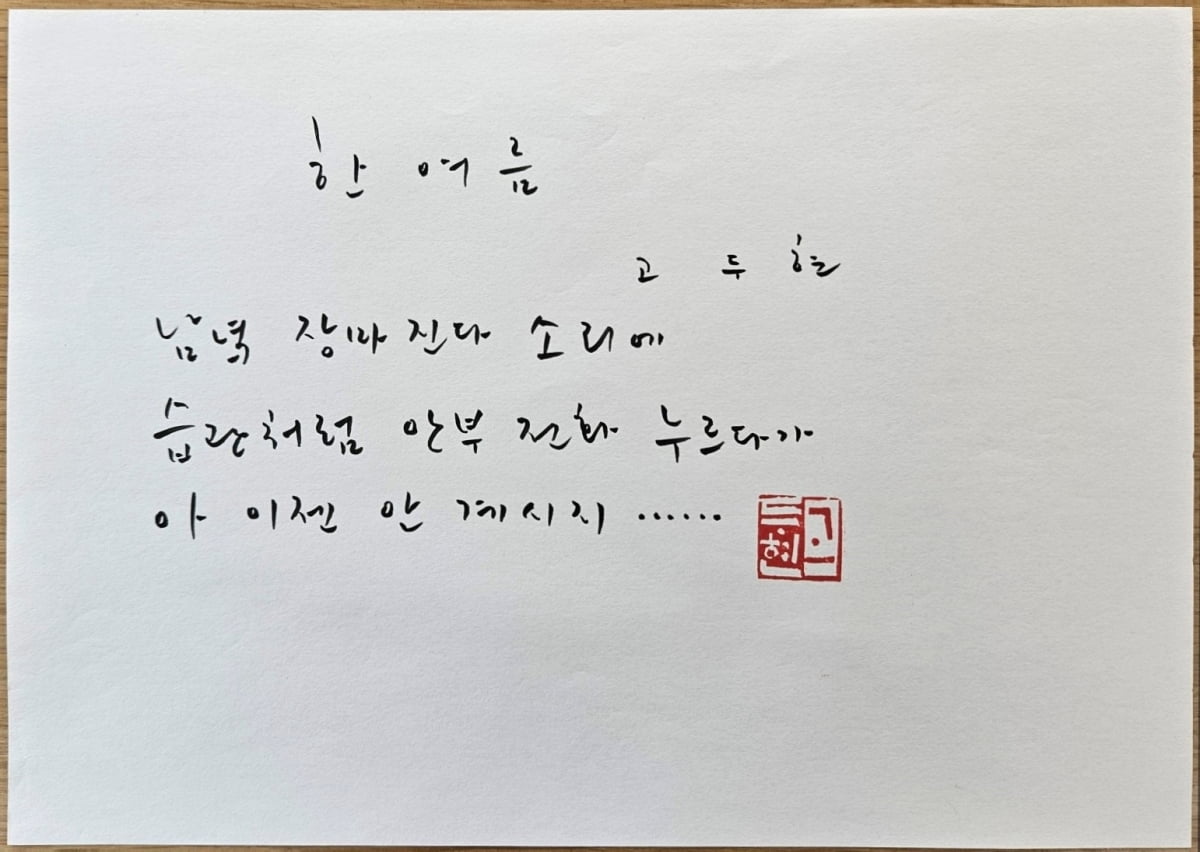 한 여름
고 두 현
남녘 장마 진다 소리에
습관처럼 안부 전화 누르다가
아 이젠 안 계시지 ……
고두현